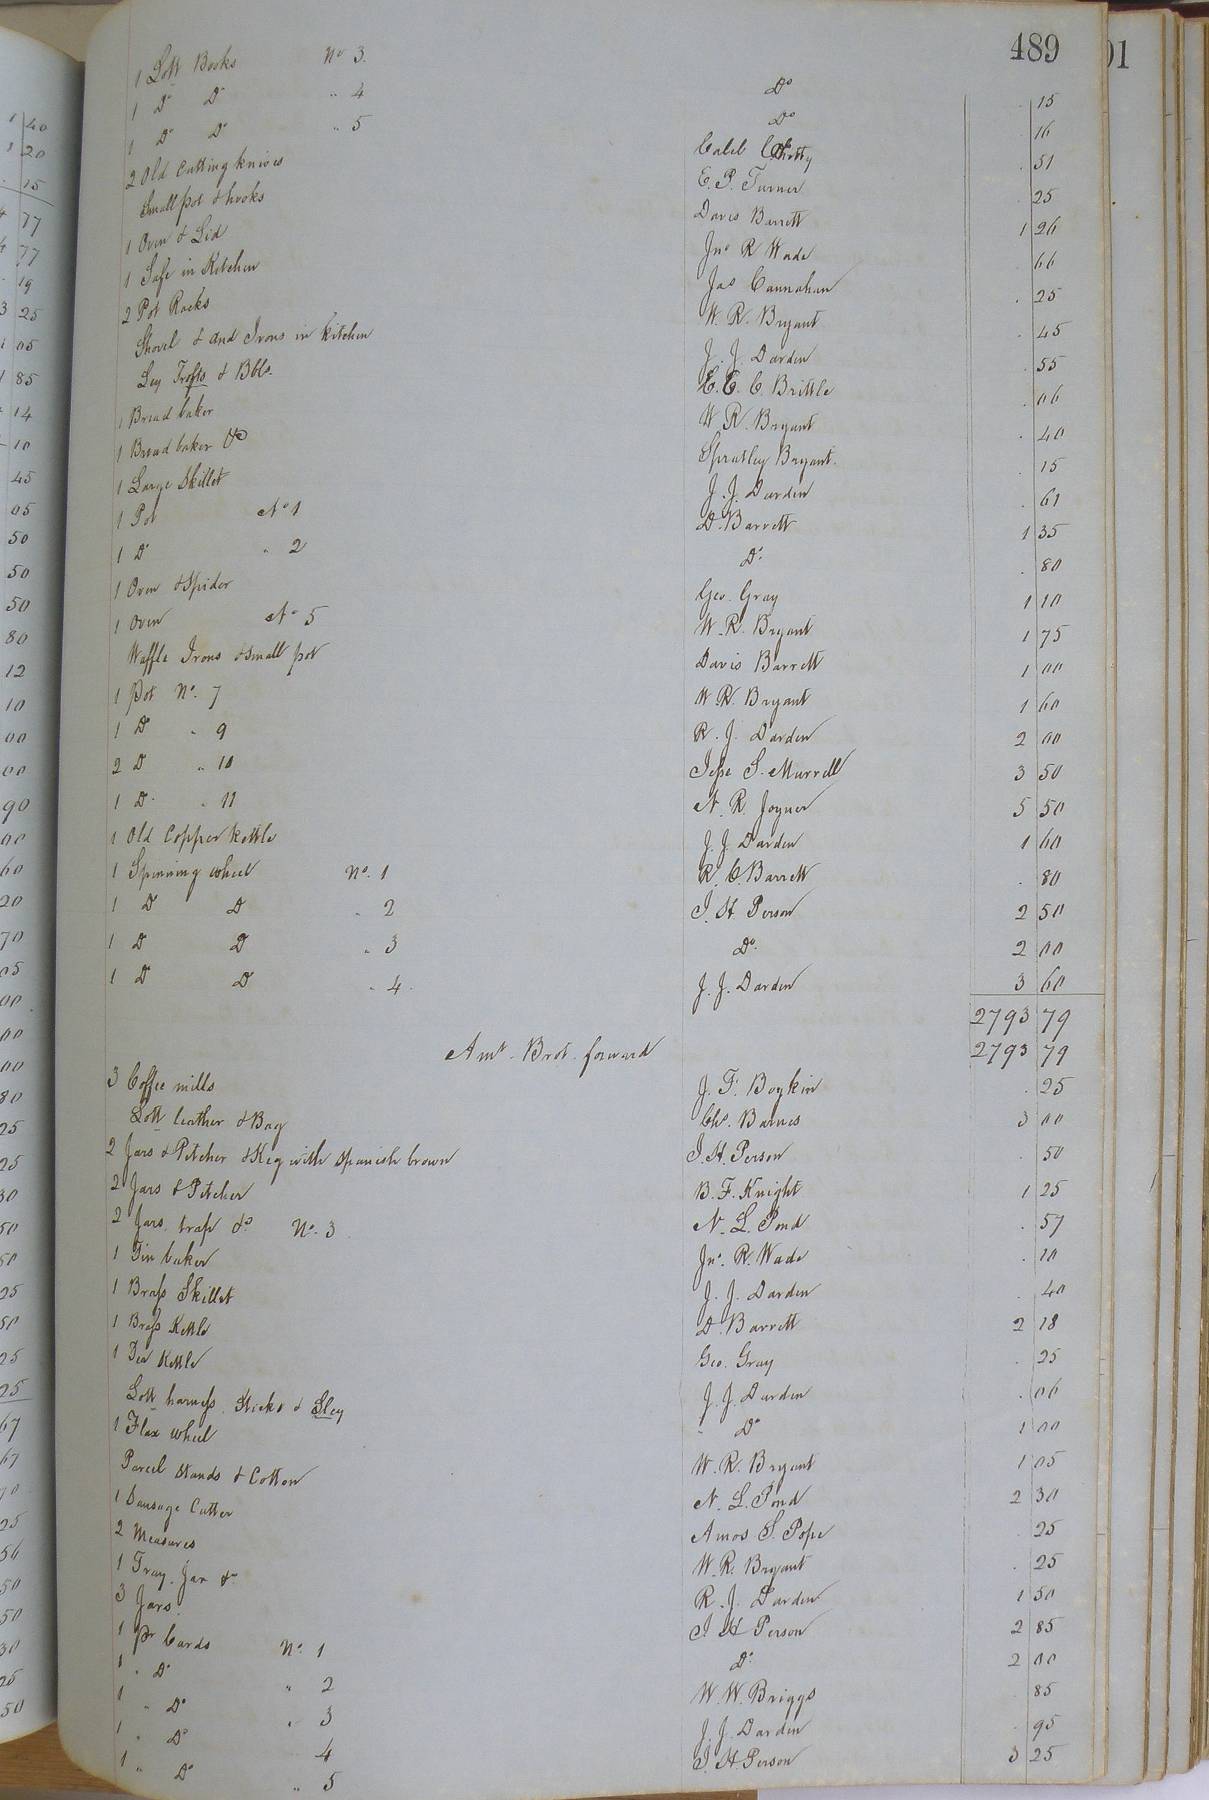 489
01
1 Lott Books No 3. Do . 15
1 Do Do " 4 Do . 16
1 Do Do " 5 Caleb Chitty . 51
2 Old Cutting knives E. P. Turner . 25
Small pot & hooks Davis Barrett 1 26
1 Oven & Lid Jno R Wade . 66
1 Safe in Kitchen Jas Cannahan . 25
2 Pot Racks W. R. Bryant . 45
Shovel & And Irons in kitchen J. J. Darden . 55
Ley Trofts & Bbls. E. E. C. Brittle . 06
1 Bread baker W R. Bryant . 40
1 Bread baker &c Spratley Bryant . 15
1 Large Skillet J. J. Darden . 61
1 Pot No 1 D. Barrett 1 35
1 Do " 2 Do . 80
1 Oven & Spider Geo. Gray 1 10
1 Oven No 5 W. R. Bryant 1 75
Waffle Irons & small pot Davis Barrett 1 00
1 Pot No. 7 W R. Bryant 1 60
1 Do " 9 R. J. Darden 2 00
2 D " 10 Jesse S. Murrell 3 50
1 D. " 11 N. R. Joyner 5 50
1 Old Copper Kettle J. J. Darden 1 60
1 Spinning wheel No. 1 R. C. Barrett . 80
1 D D " 2 J. H. Person 2 50
1 D D " 3 Do. 2 00
1 D D " 4. J. J. Darden 3 60
2793 79
Amt. Brot. forward 2793 79
3 Coffee mills J. F. Boykin . 25
Lott leather & Bag Chs. Barnes 3 00
2 Jars & Pitcher & Keg with Spanish brown J. H. Person . 50
2 Jars & Pitcher B. F. Knight 1 25
2 Jars, trap &c No. 3 N. L. Pond . 57
1 Tin baker Jno. R. Wade . 10
1 Brass Skillet J. J. Darden . 40
1 Brass Kettle D. Barrett 2 18
1 Tea Kettle Geo. Gray . 25
Lott harness Sticks & Sley J. J. Darden . 06
1 Flax wheel Do 1 00
Parcel Stands & Cotton W. R. Bryant 1 05
1 Sausage Cutter N. L. Pond 2 30
2 Measures Amos S. Pope . 25
1 Tray. Jar &c W. R. Bryant . 25
3 Jars R. J. Darden 1 50
1 Pr Cards No. 1 J. H Person 2 85
1 " Do " 2 Do. 2 00
1 " Do " 3 W. W. Briggs . 85
1 " Do 4 J. J. Darden . 95
1 " Do " 5 J. H. Person 3 25